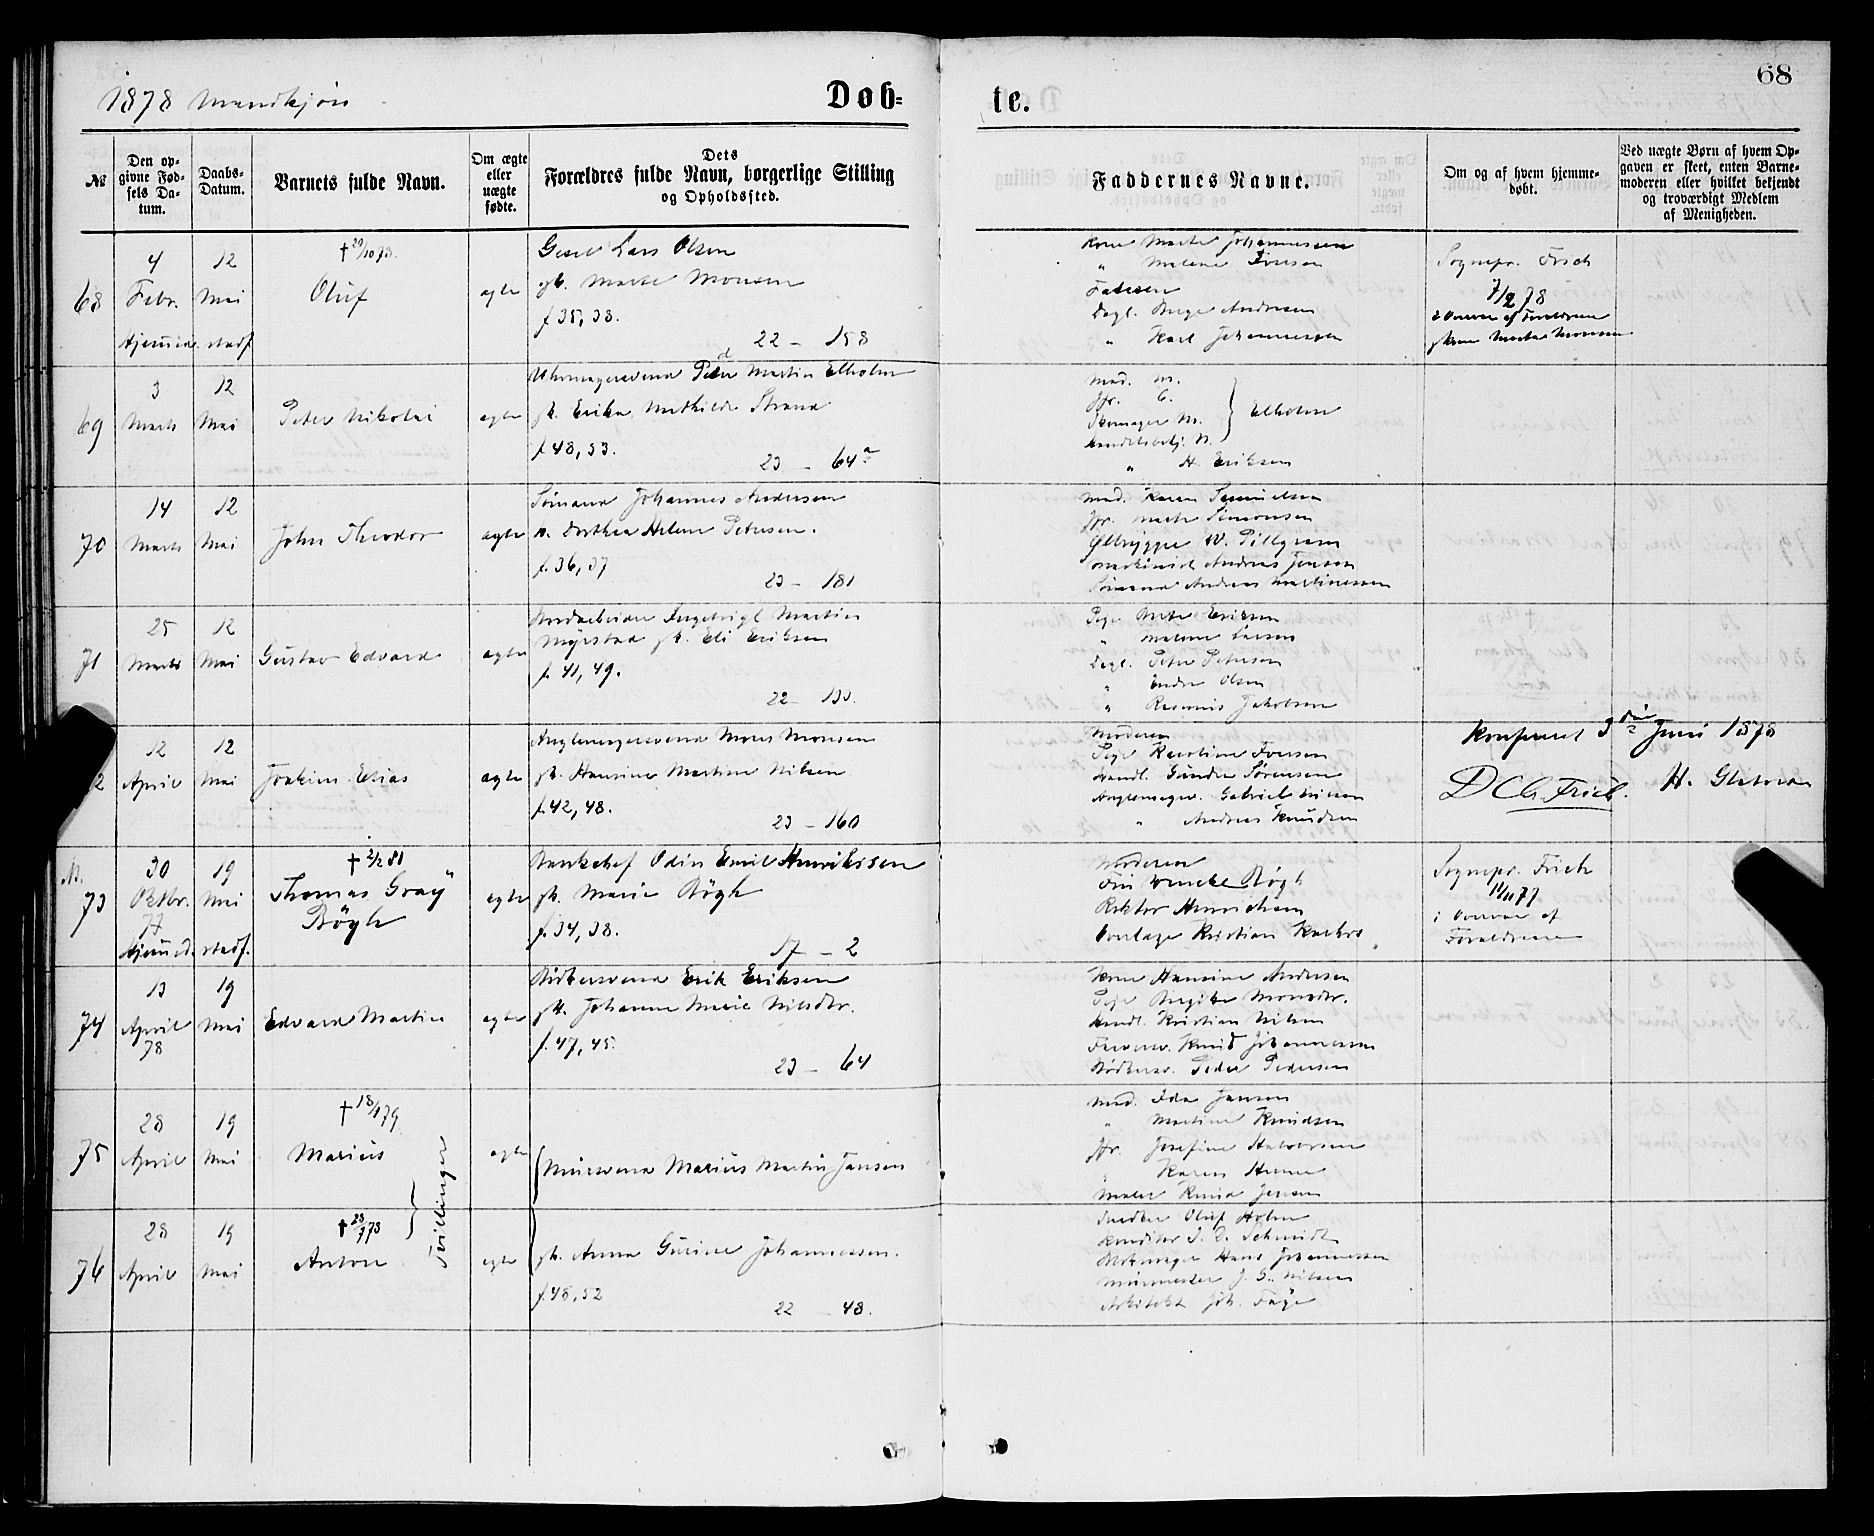 68
1878 Mandkjøn
Døb=
te.
№
Den opgivne Fødsels Datum.
Daabs-Datum.
Barnets fulde Navn.
Om ægte eller uægte fødte.
Dets
Forældres fulde Navn, borgerlige Stilling
og Opholdssted.
Faddernes Navne.
Om og af hvem hjemme-
døbt.
Ved uægte Børn af hvem Op-
gaven er skeet, enten Barne-
moderen eller hvilket bekjendt
og troværdigt Medlem
af Menigheden.
68
4
Febr.
Hjemmed. stadf.
12
Mai
Oluf
ægte
Lars Olsen
gb. Marte Monsen
f 35, 38.
22 - 158
Kone Marte Johannessen
" Malene Iversen
Faderen
Dagl. Andersen
" Karl Johannessen
Sognepr. Frich
7/2 78
69
3
Marts
12
Mai
Peter Nikolai
ægte
Uhrmagersvend Peder Martin Elholm
gb. Erika Mathilde Strand
f 48, 53.
23 - 64a
Mad. M.
Jfr. C.
Elholm
" H. Eriksen
70
14
Marts
12
Mai
John Theodor
ægte
Sømand Johannes Andersen
Dorthea Helene Petersen.
f. 36, 37
23 - 181
Mad. Karen Samuelsen
Jfr. Marte Simonsen
Ølbrygger W. Pillgram
Maskinist Andreas Jensen
Sømand Andreas Martinessen
71
25
Marts
12
Mai
Gustav Edvard
ægte
Ingebrigt Martin
Myrstad gb. Eli Eriksen
f. 41, 49.
22 - 130.
Pige Marte Eriksen
" Malene Larsen
Dagl. Peter Petersen
" Endre Olsen
" Rasmus Jakobsen
2
12
April
12
Mai
Joakim Elias
ægte
Mons Monsen
gb. Hansine Martine Nilsen
f. 42, 48.
23 - 160
Moderen
Pige Karoline Iversen
Handl. Gunder Sørensen
Gabriel Nilsen
" Andreas Knudsen
Konfereret 3die Juni 1878
D Ch. Frich.
73
30
Oktbr.
77
Hjemmed. stadf.
19
Mai
† 2/2 81
Thomas Gray
Bøgh
ægte
Bankchef Odin Emil Henrichsen
gb. Marie Bøgh
f. 34, 38.
17 - 2
Moderen
Fru Wencke Bøgh
Rektor Henrichsen
Overlæge Kristian Kahrs
Sognepr. Frich
11/11 77
i Overvær af
Forældrene
74
13
April
78
19
Mai
Edvard Martin
ægte
Bødkersvend Erik Eriksen
gb. Johanne Marie Nilsdtr.
f. 47, 45.
23 - 64
Kone Hansine Andersen
Pige Birgitte Monsdtr.
Handl. Kristian Nilsen
Farversv. Knud Johannessen
Bødkersv. Peder Pedersen
75
28
April
19
Mai
† 18/1 79
Marius
Tvillinger
ægte
Mursvend Marius Martin Jansen
Mad. Ida Jansen
" Martine Knudsen
Jfr. Josefine Halvorsen
" Karen
Maler Knud Jensen
76
28
April
19
Mai
† 28/7 78
Anton
ægte
gb. Anna Gurine Johannessen.
f. 48, 52
22 - 48.
Snedker Oluf Holm
Konditor J. C. Schmidt
Hans Johannessen
Murmester J. G. Nilsen
Arkitekt Joh. Faye